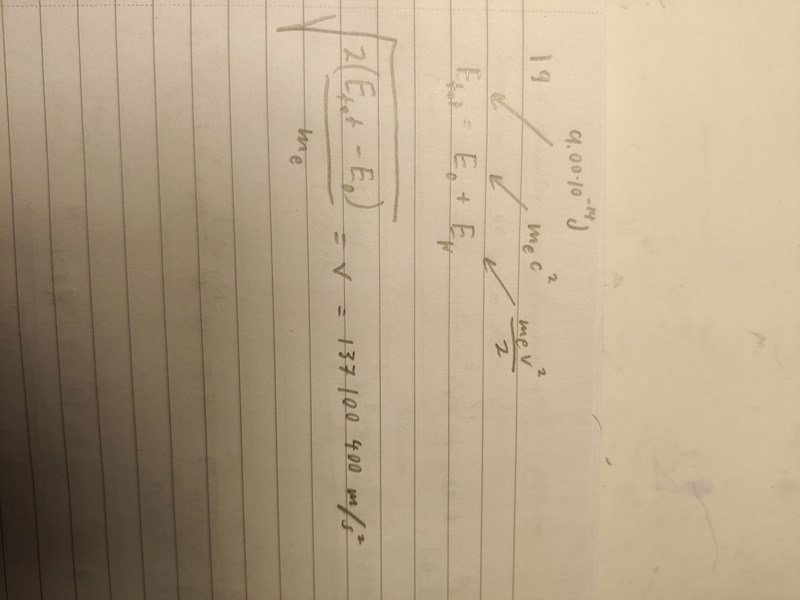 19
9.00·10⁻¹⁴ J
mₑc²
mₑv²/2
Eₜₒₜ = E₀ + Eₖ
√(2(Eₜₒₜ - E₀)/mₑ) = v = 137 100 400 m/s²